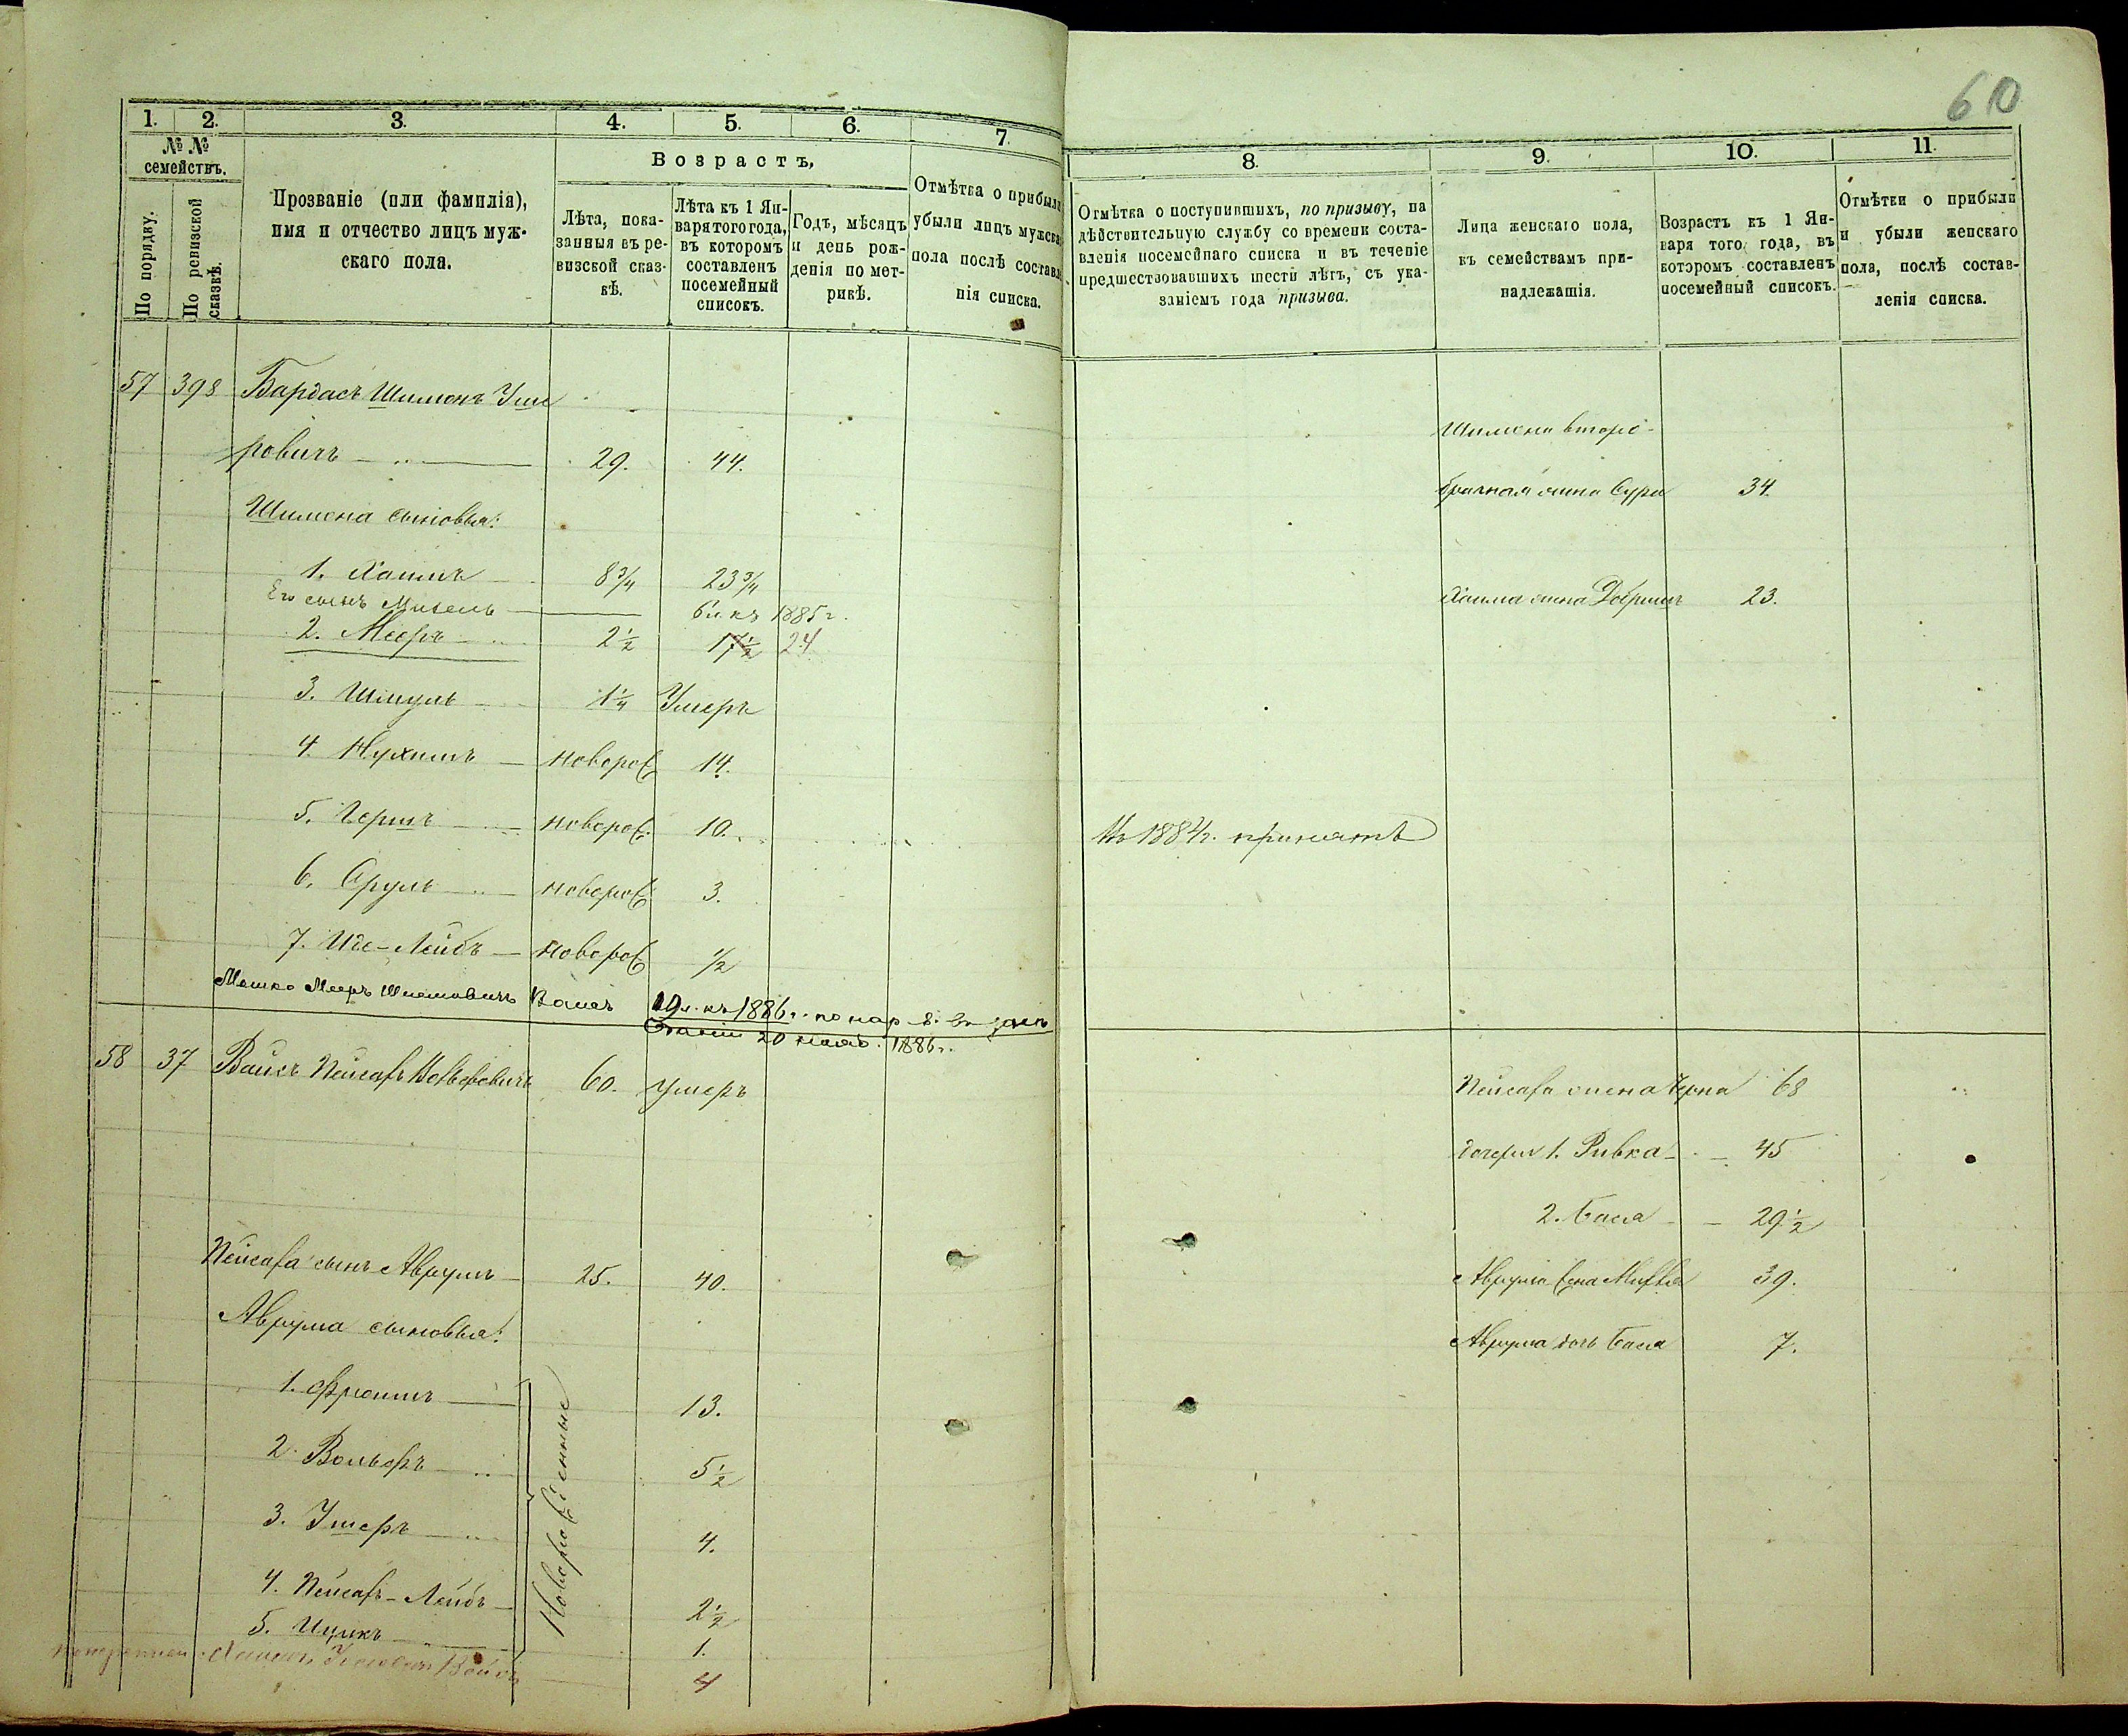 610
1. 2. 3. 4. 5. 6. 7. 8. 9. 10. 11.
№ № семействъ.
По порядку.
По ревизской сказкѣ.
Прозваніе (или фамилія),
имя и отчество лицъ муж-
скаго пола.
Возрастъ,
Лѣта, пока-
занныя въ ре-
визской сказ-
кѣ.
Лѣта къ 1 Ян-
варя того года,
въ которомъ
составленъ
посемейный
списокъ.
Годъ, мѣсяцъ
и день рож-
денія по мет-
рикѣ.
Отмѣтка о прибыли
убыли лицъ мужска
пола послѣ составле
нія списка.
Отмѣтка о поступившихъ, по призыву, на
дѣйствительную службу со времени соста-
вленія посемейнаго списка и въ теченіе
предшествовавшихъ шести лѣтъ, съ ука-
заніемъ года призыва.
Лица женскаго пола,
къ семействамъ при-
надлежащія.
Возрастъ къ 1 Ян-
варя того года, въ
которомъ составленъ
посемейный списокъ.
Отмѣтки о прибыли
и убыли женскаго
пола, послѣ состав-
ленія списка.
57 398 Бардасъ Шимонъ Уше
ровичъ 29. 44.
Шимона вторo-
брачная жена Сура 34.
Шимона сыновья:
1. Хаимъ 8 3/4 23 3/4
Хаима жена Добришъ 23.
Его сынъ Михель 6 л. къ 1885 г.
2. Мееръ 2 1/2 17 1/2 24
3. Шмуль 1 1/4 Умеръ
4. Нухимъ новорож 14.
5. Гершъ новорож. 10. Въ 1884 г. принятъ
6. Сруль новорож. 3.
7. Иде-Лейбъ новорож 1/2
Мошко Мееръ Вайсъ 19 л. къ 1886 г. по нар
20 1886 г.
58 37 Вайсъ Пейсахъ Волверовичъ 60. умеръ
Пейсаха жена Черна 68
дочери 1. Ривка 45
2. Бася 29 1/2
Пейсаха сынъ Аврумъ 25. 40.
Аврума жена 39.
Аврума сыновья:
Аврума дочь Бася 7.
Новорожденные
1. Фроимъ 13.
2. Вольверъ 5 1/2
3. Ушеръ 4.
4. Пейсахъ-Лейбъ 2 1/2
5. Ицикъ 1.
Вайсъ 4